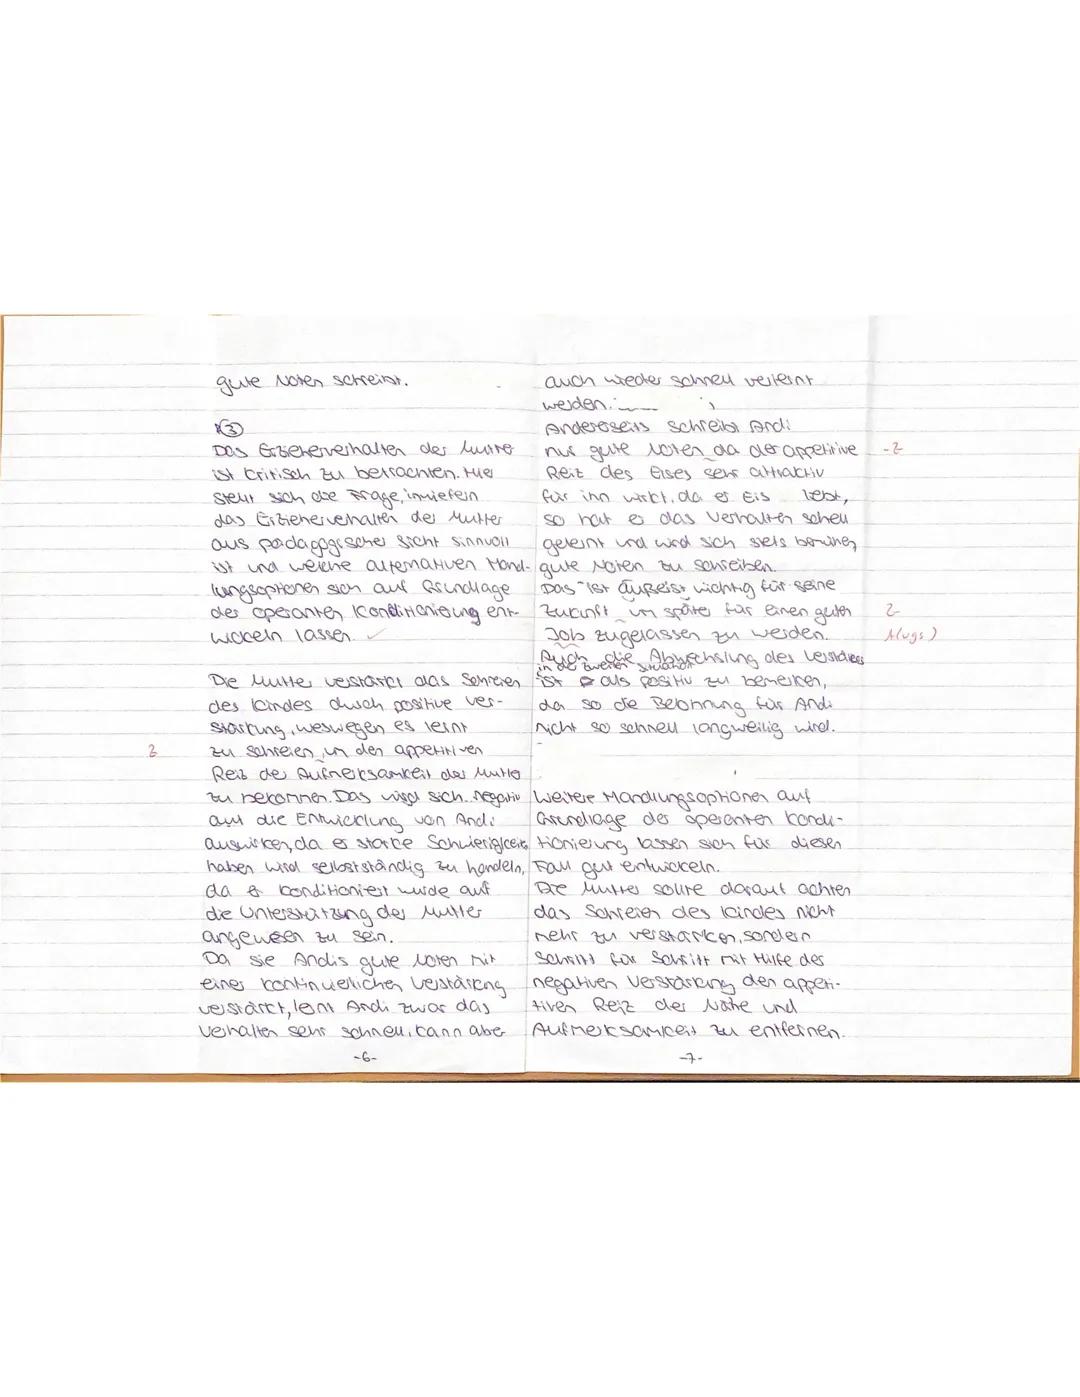 gute Noten schreibt.
③
Das Erzieherverhalten der Mutter
ist kritisch zu betrachten. Hier
stellt sich die Frage, inwiefern
das Erzieherverhalten der Mutter
aus pädagogischer Sicht sinnvoll
ist und welche alternativen Hand-
lungsoptionen sich auf Grundlage
der operanten Konditionierung ent-
wickeln lassen. ✓
Die Mutter verstärkt das Schreien
des Kindes durch positive Ver-
stärkung, weswegen es lernt
zu schreien, um den appetitiven
Z
Reiz der Aufmerksamkeit der Mutter
zu bekommen. Das wird sich negativ
auf die Entwicklung von Andi
auswirken, da er starke Schwierigkeiten
haben wird selbstständig zu handeln,
da er konditioniert wurde auf
die Unterstützung der Mutter
angewiesen zu sein.
Da sie Andis gute Noten mit
einer kontinuierlichen Verstärkung
verstärkt, lernt Andi zwar das
Verhalten sehr schnell, kann aber
-6-
auch wieder schnell verlernt
werden.
Andererseits schreibt Andi
nur gute Noten da der appetitive
-Z
Reiz des Eises sehr attraktiv
für ihn wirkt, da er Eis liebt,
so hat er das Verhalten schell
gelernt und wird sich stets bemühen
gute Noten zu schreiben.
Das ist äußerst wichtig für seine
Zukunft um später für einen guten
Z
Job zugelassen zu werden.
A (ugs.)
Auch die Abwechslung des Verstärkers
in der zweiten Situation
ist als positiv zu bemerken,
da so die Belohnung für Andi
nicht so schnell langweilig wird.
Weitere Handlungsoptionen auf
Grundlage der operanten Kondi-
tionierung lassen sich für diesen
Fall gut entwickeln.
Die Mutter sollte darauf achten
das Schreien des Kindes nicht
mehr zu verstärken, sondern
Schritt für Schritt mit Hilfe der
negativen Verstärkung den appeti-
tiven Reiz der Nähe und
Aufmerksamkeit zu entfernen.
-7-